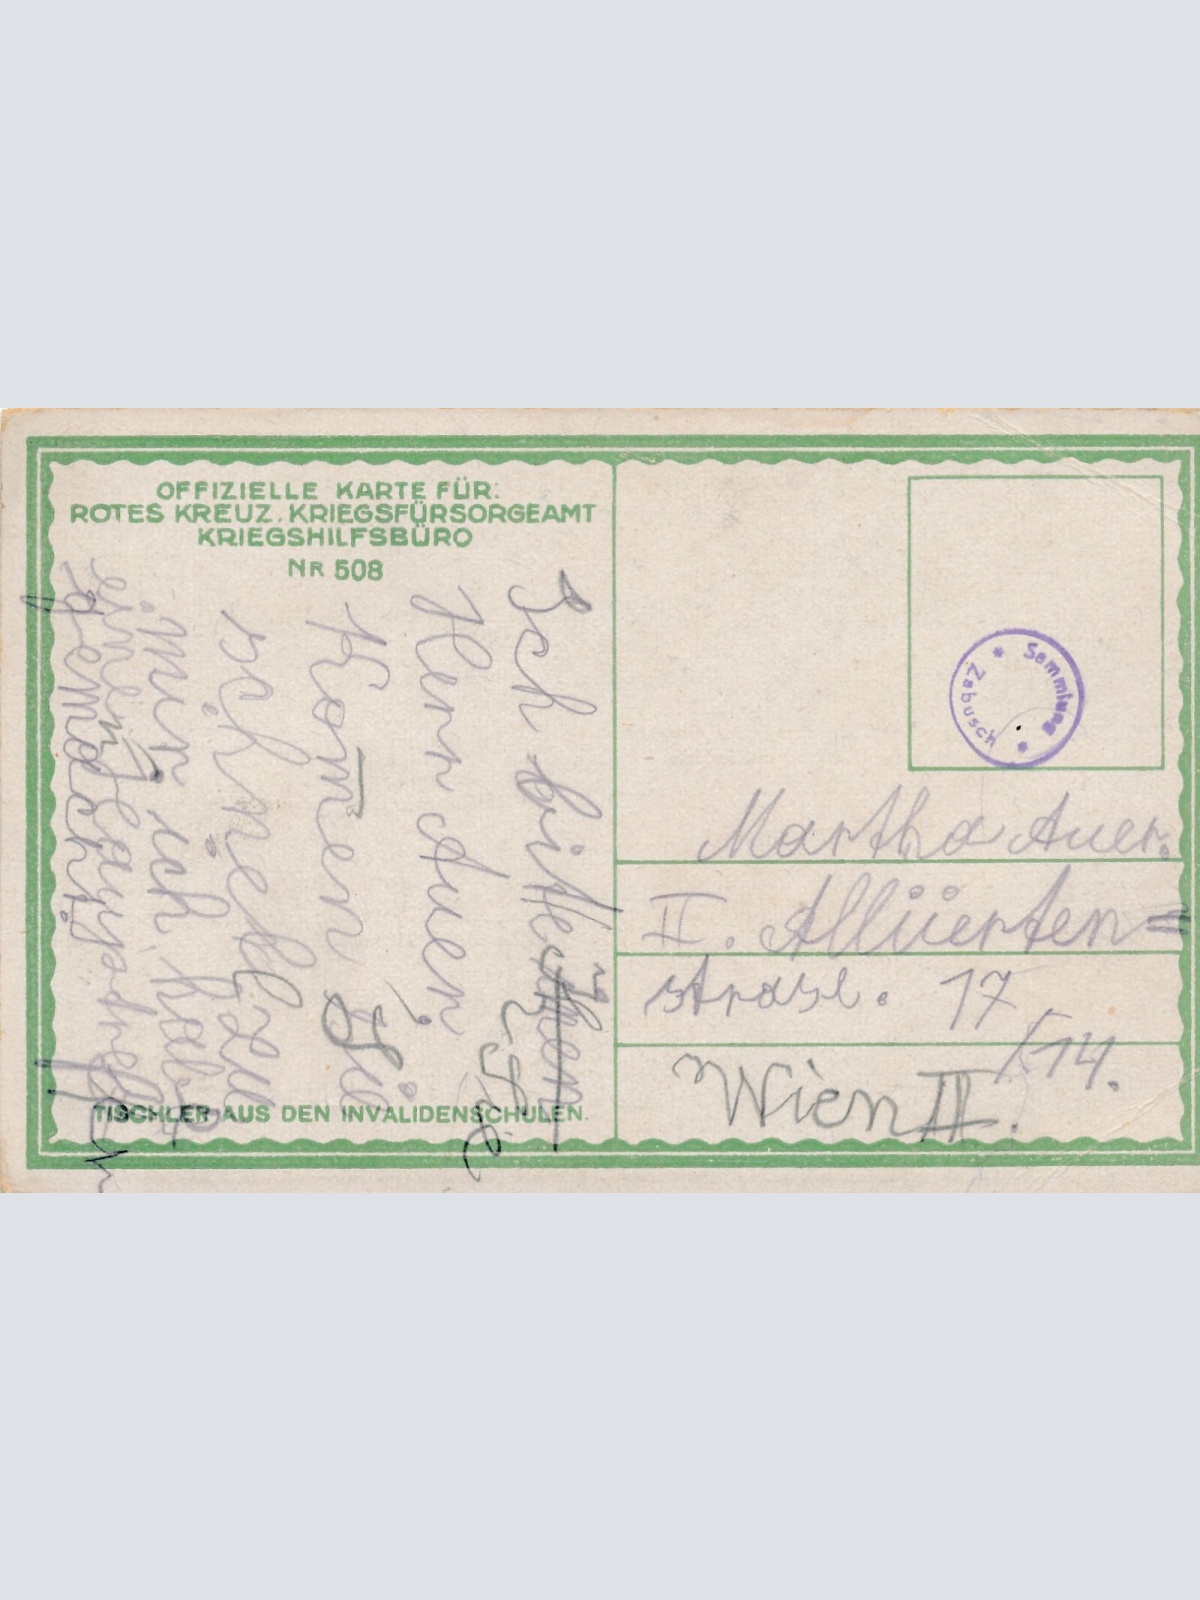 OFFIZIELLE KARTE FÜR:
ROTES KREUZ, KRIEGSFÜRSORGEAMT
KRIEGSHILFSBÜRO
NR 508
Ich bitte Ihnen Sie
Herr Auer,
Komen Sie
schnell zu
mir ich habe
einen
gemacht.
TISCHLER AUS DEN INVALIDENSCHULEN.
Sammlung
Zabusch
Martha Auer.
II. Alliierten=
strasse. 17
/14.
Wien II.